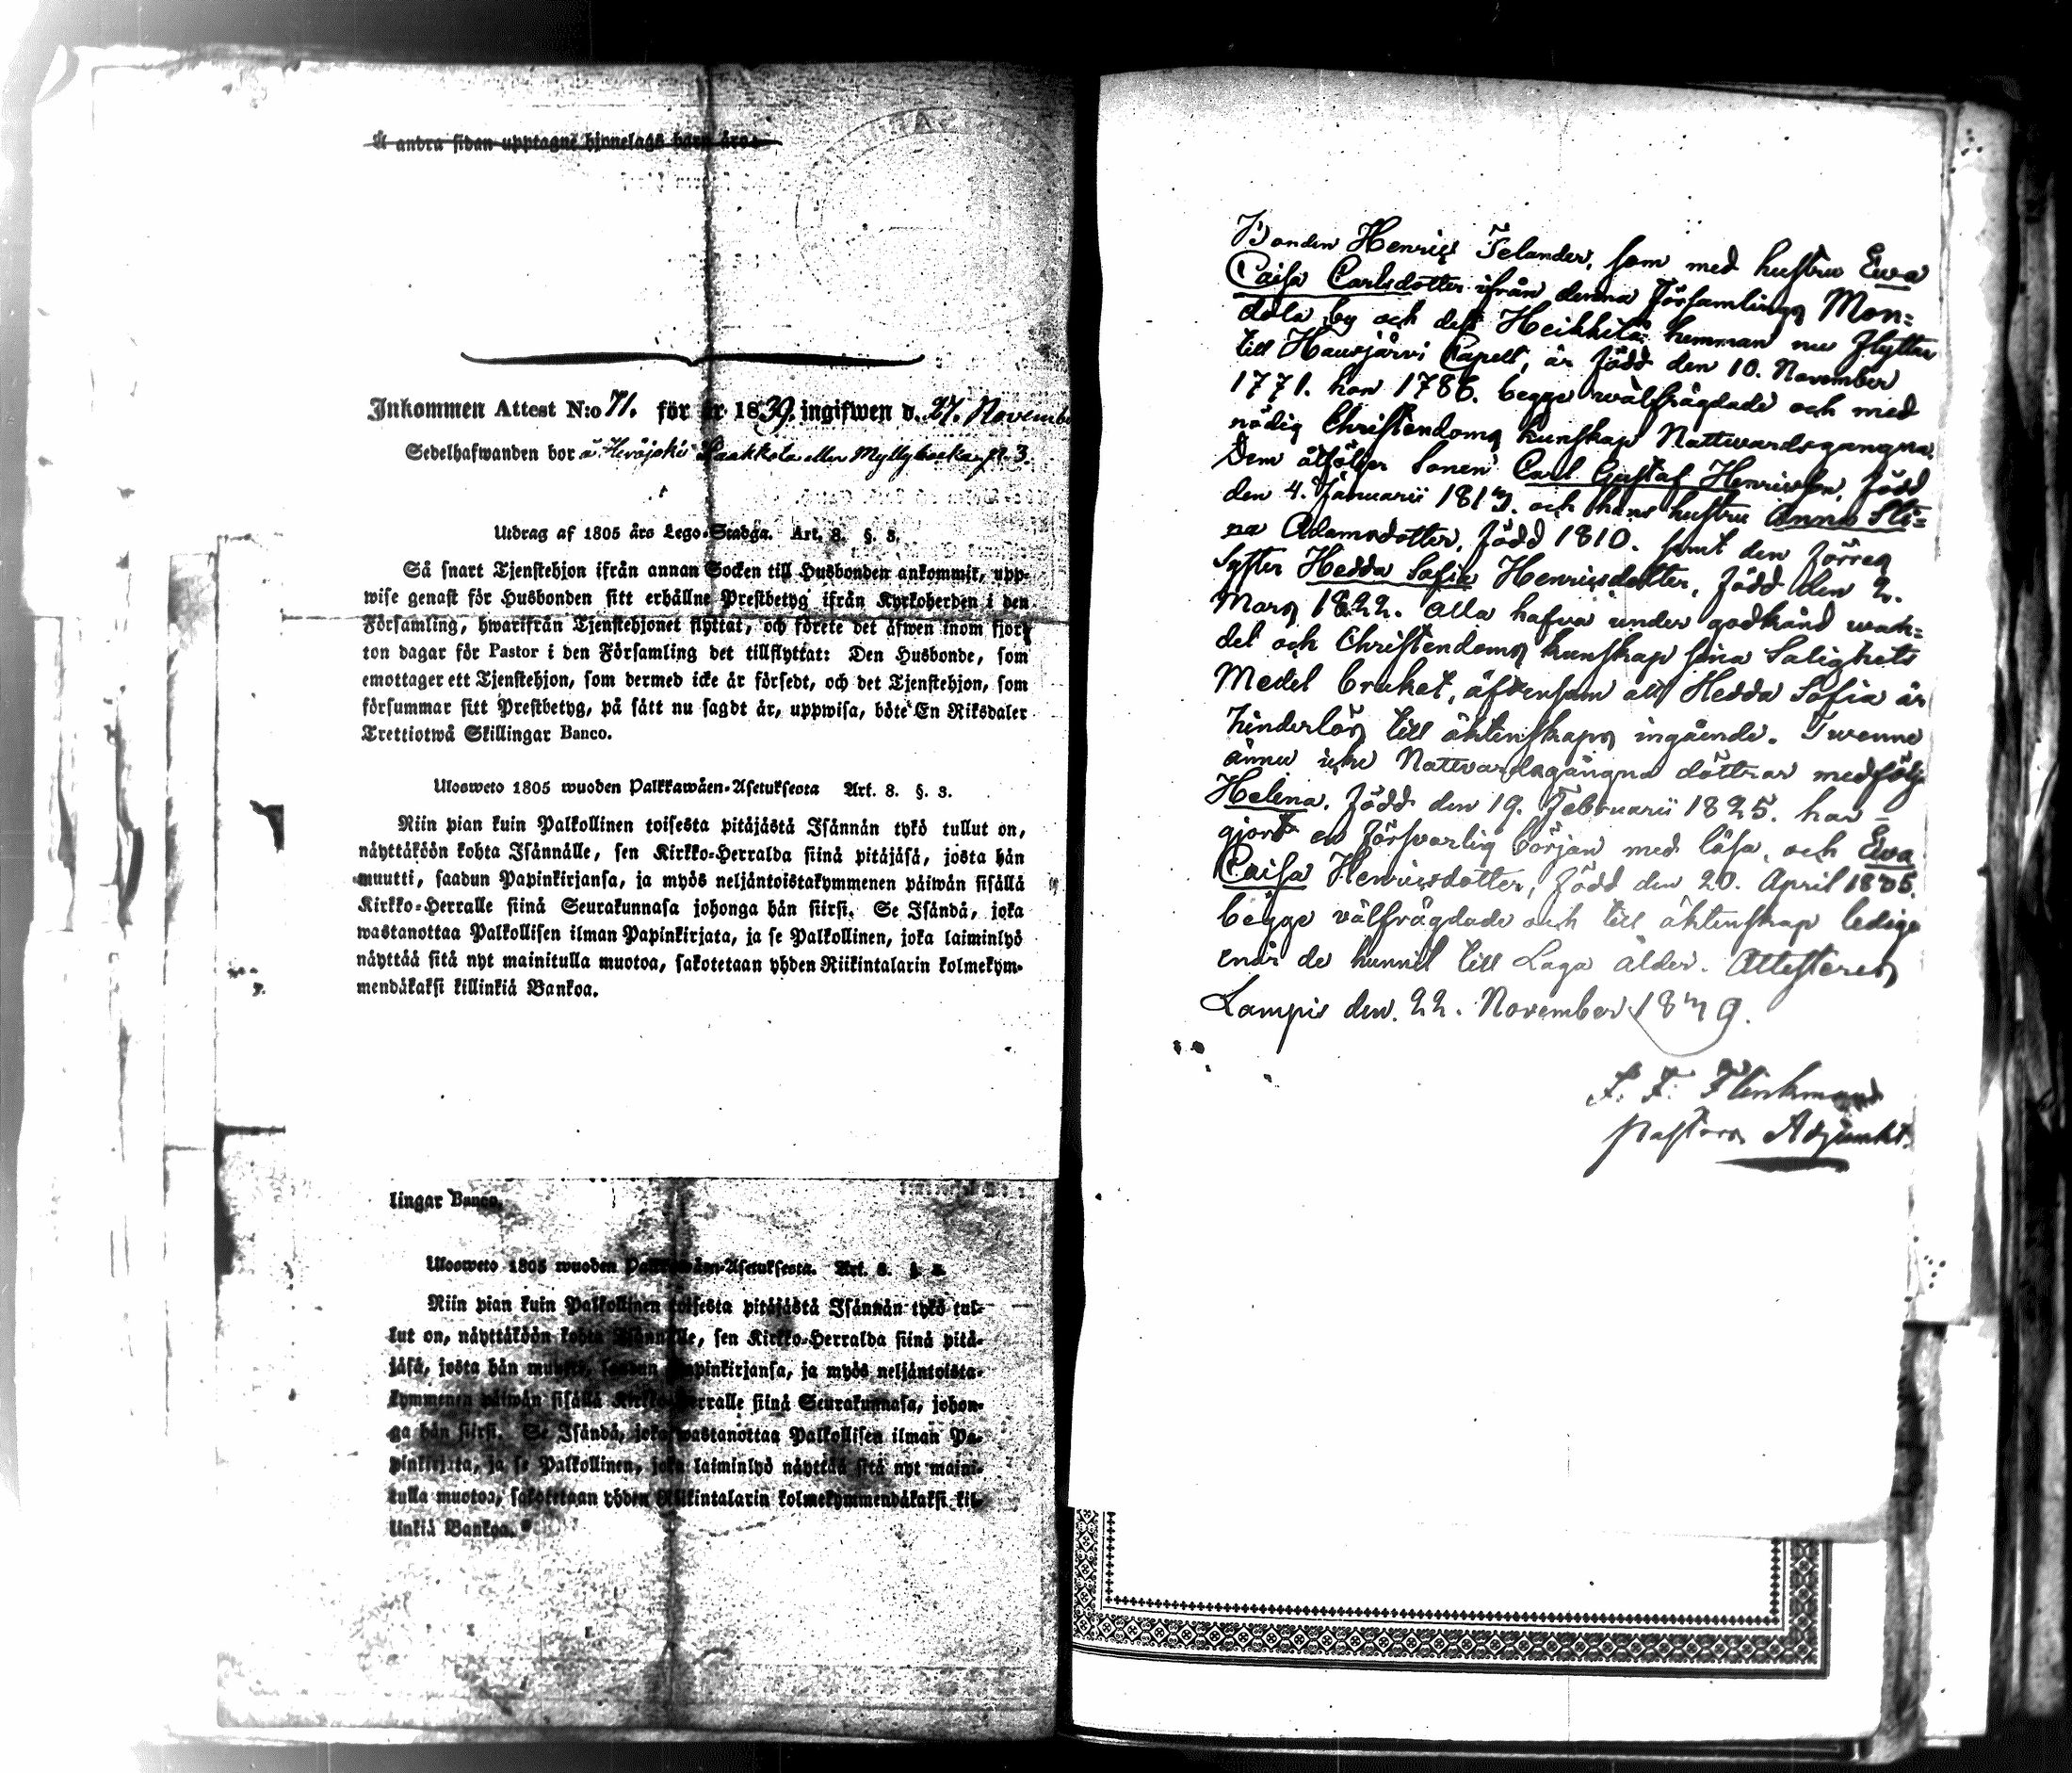 A andra sidan upptagne hjonelags barn äro
Inkommen Attest N:o 71. för år 1839. ingifwen d. 27. Novemb
Sedelhafwanden bor å Herajoki Paakkola eller Myllybacka N. 3.
Utdrag af 1805 års Lego-Stadga. Art. 8. §. 3.
Så snart Tjenstehjon ifrån annan Socken till Husbonden ankommit, upp-
wise genast för Husbonden sitt erhållne Prestbetyg ifrån Kyrkoherden i den
Församling, hwarifrån Tjenstehjonet flyttat, och förete det äfwen inom fjor-
ton dagar för Pastor i den Församling det tillflyttat: Den Husbonde, som
emottager ett Tjenstehjon, som dermed icke är försedt, och det Tjenstehjon, som
försummar sitt Prestbetyg, på sätt nu sagdt är, uppwisa, böte En Riksdaler
Trettiotwå Skillingar Banco.
Ulosweto 1805 wuoden Palkkawäen-Asetuksesta Art. 8. §. 3.
Niin pian kuin Palkollinen toisesta pitäjästä Isännän tykö tullut on,
näyttäköön kohta Isännälle, sen Kirkko-Herralda siinä pitäjäsä, josta hän
muutti, saadun Papinkirjansa, ja myös neljäntoistakymmenen päiwän sisällä
Kirkko-Herralle siinä Seurakunnasa johonga hän siirsi. Se Isändä, joka
wastanottaa Palkollisen ilman Papinkirjata, ja se Palkollinen, joka laiminlyö
näyttää sitä nyt mainitulla muotoa, sakotetaan yhden Riikintalarin kolmekym-
mendäkaksi killinkiä Bankoa.
lingar Banco.
Ulosweto 1805 wuoden Palkkawäen-Asetuksesta. Art. 8. §. 3.
Niin pian kuin Palkollinen toisesta pitäjästä Isännän tykö tul-
lut on, näyttäköön kohta Isännälle, sen Kirkko-Herralda siinä pitä-
jäsä, josta hän muutti, saadun Papinkirjansa, ja myös neljäntoista-
kymmenen päiwän sisällä Kirkko-Herralle siinä Seurakunnasa, johon-
ga hän siirsi. Se Isändä, joka wastanottaa Palkollisen ilman Pa-
pinkirjata, ja se Palkollinen, joka laiminlyö näyttää sitä nyt maini-
tulla muotoa, sakotetaan yhden Riikintalarin kolmekymmendäkaksi kil-
linkiä Bankoa.
Bonden Henric Telander, som med hustru Ewa
Caisa Carlsdotter ifrån denna Församlings Mon=
dola by och dess Heikkilä hemman nu flyttar
till Hausjärvi Capell, är född den 10. November
1771. hon 1786. begge wälfrägdade och med
nödig Christendoms kunskap Nattvardsgångna.
Dem åtföljer Sonen Carl Gustaf Henricsson, född
den 4. Januarii 1813. och hans hustru Anna Sti=
na Adamsdotter, född 1810. samt den förres
Syster Hedda Sofia Henricsdotter, född den 2.
Mars 1822. Alla hafva under godkänd wan=
del och Christendoms kunskap sina Salighets
Medel brukat, äfvensom att Hedda Sofia är
hinderlös till äktenskaps ingående. Twenne
ännu icke Nattvardsgångna döttrar medfölja
Helena, född den 19. Februarii 1825. har
gjort en försvarlig början med läsa, och Ewa
Caisa Henricsdotter, född den 20. April 1835.
begge välfrägdade och till äktenskap lediga
när de hunnit till Laga ålder. Attesteras
Lampis den 22. November 1839.
F. F. Flinkman
Pastors Adjunkt.